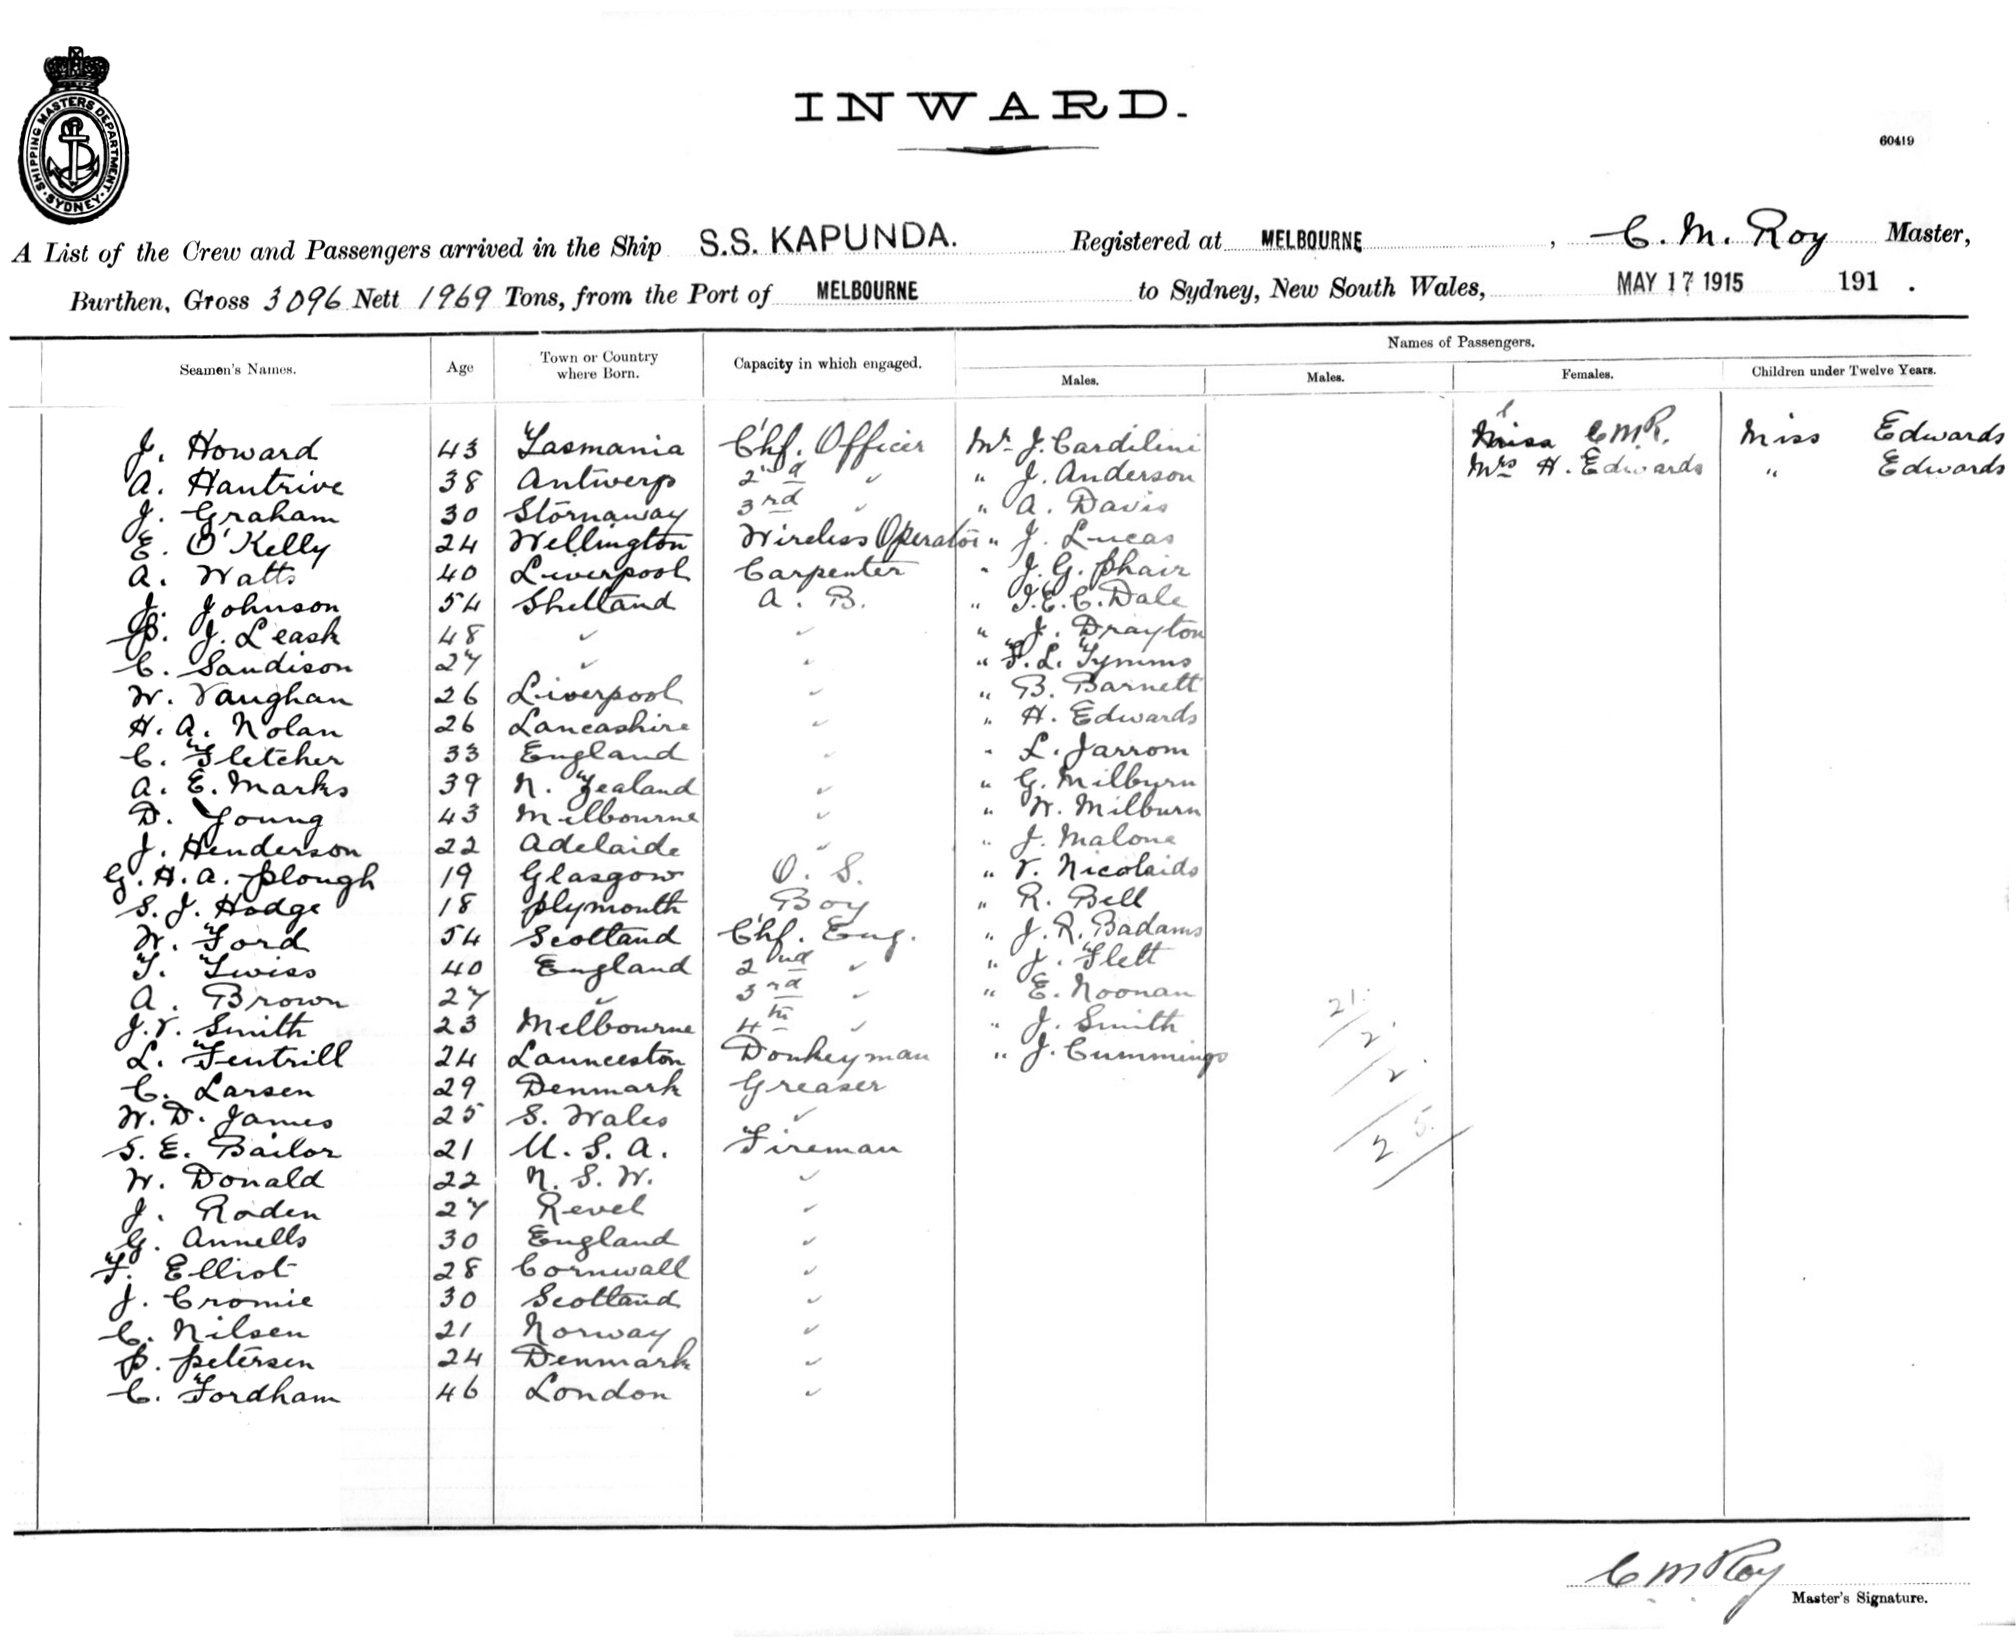 SHIPPING MASTERS DEPARTMENT · SYDNEY ·
INWARD.
60419
A List of the Crew and Passengers arrived in the Ship S.S. KAPUNDA. Registered at MELBOURNE, C. M. Roy Master,
Burthen, Gross 3096 Nett 1969 Tons, from the Port of MELBOURNE to Sydney, New South Wales, MAY 17 1915 191 .
Names of Passengers.
Seamen's Names. Age Town or Country where Born. Capacity in which engaged. Males. Males. Females. Children under Twelve Years.
J. Howard 43 Tasmania Chf. Officer Mr J. Cardilini C M R. Miss Edwards
A. Hantrive 38 Antwerp 2nd " " J. Anderson Mrs H. Edwards " Edwards
J. Graham 30 Stornaway 3rd " " A. Davis
E. O'Kelly 24 Wellington Wireless Operator " J. Lucas
A. Watts 40 Liverpool Carpenter " J. G. Phair
J. Johnson 54 Shetland A. B. " T. E. C. Dale
P. J. Leask 48 " " " J. Drayton
C. Sandison 27 " " " F. L. Tymms
W. Vaughan 26 Liverpool " " B. Barnett
H. A. Nolan 26 Lancashire " " H. Edwards
C. Fletcher 33 England " " L. Jarrom
A. E. Marks 39 N. Zealand " " G. Milburn
D. Young 43 Melbourne " " W. Milburn
J. Henderson 22 Adelaide " " J. Malone
G. H. A. Plough 19 Glasgow O. S. " V. Nicolaids
S. J. Hodge 18 Plymouth Boy " R. Bell
W. Ford 54 Scotland Chf. Eng. " J. R. Badams
T. Twiss 40 England 2nd " " J. Flett
A. Brown 27 " 3rd " " E. Noonan
J. V. Smith 23 Melbourne 4th " " J. Smith
L. Fentrill 24 Launceston Donkeyman " J. Cummings
C. Larsen 29 Denmark Greaser
W. D. James 25 S. Wales "
S. E. Bailor 21 U. S. A. Fireman
W. Donald 22 N. S. W. "
J. Roden 27 Revel "
G. Annells 30 England "
F. Elliot 28 Cornwall "
J. Cromie 30 Scotland "
C. Nilsen 21 Norway "
P. Petersen 24 Denmark "
C. Fordham 46 London "
21
2
2
25
C M Roy
Master's Signature.